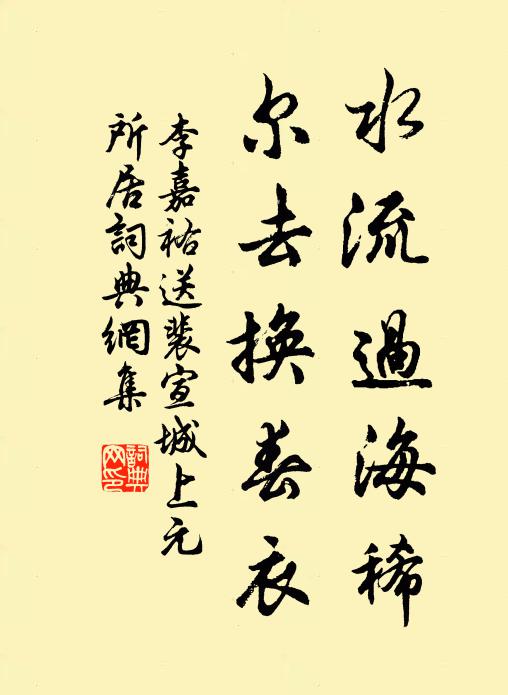 水流過海稀
尔去換春衣
李嘉祐送裴宣城上元
所居詞典網集
詞典網印